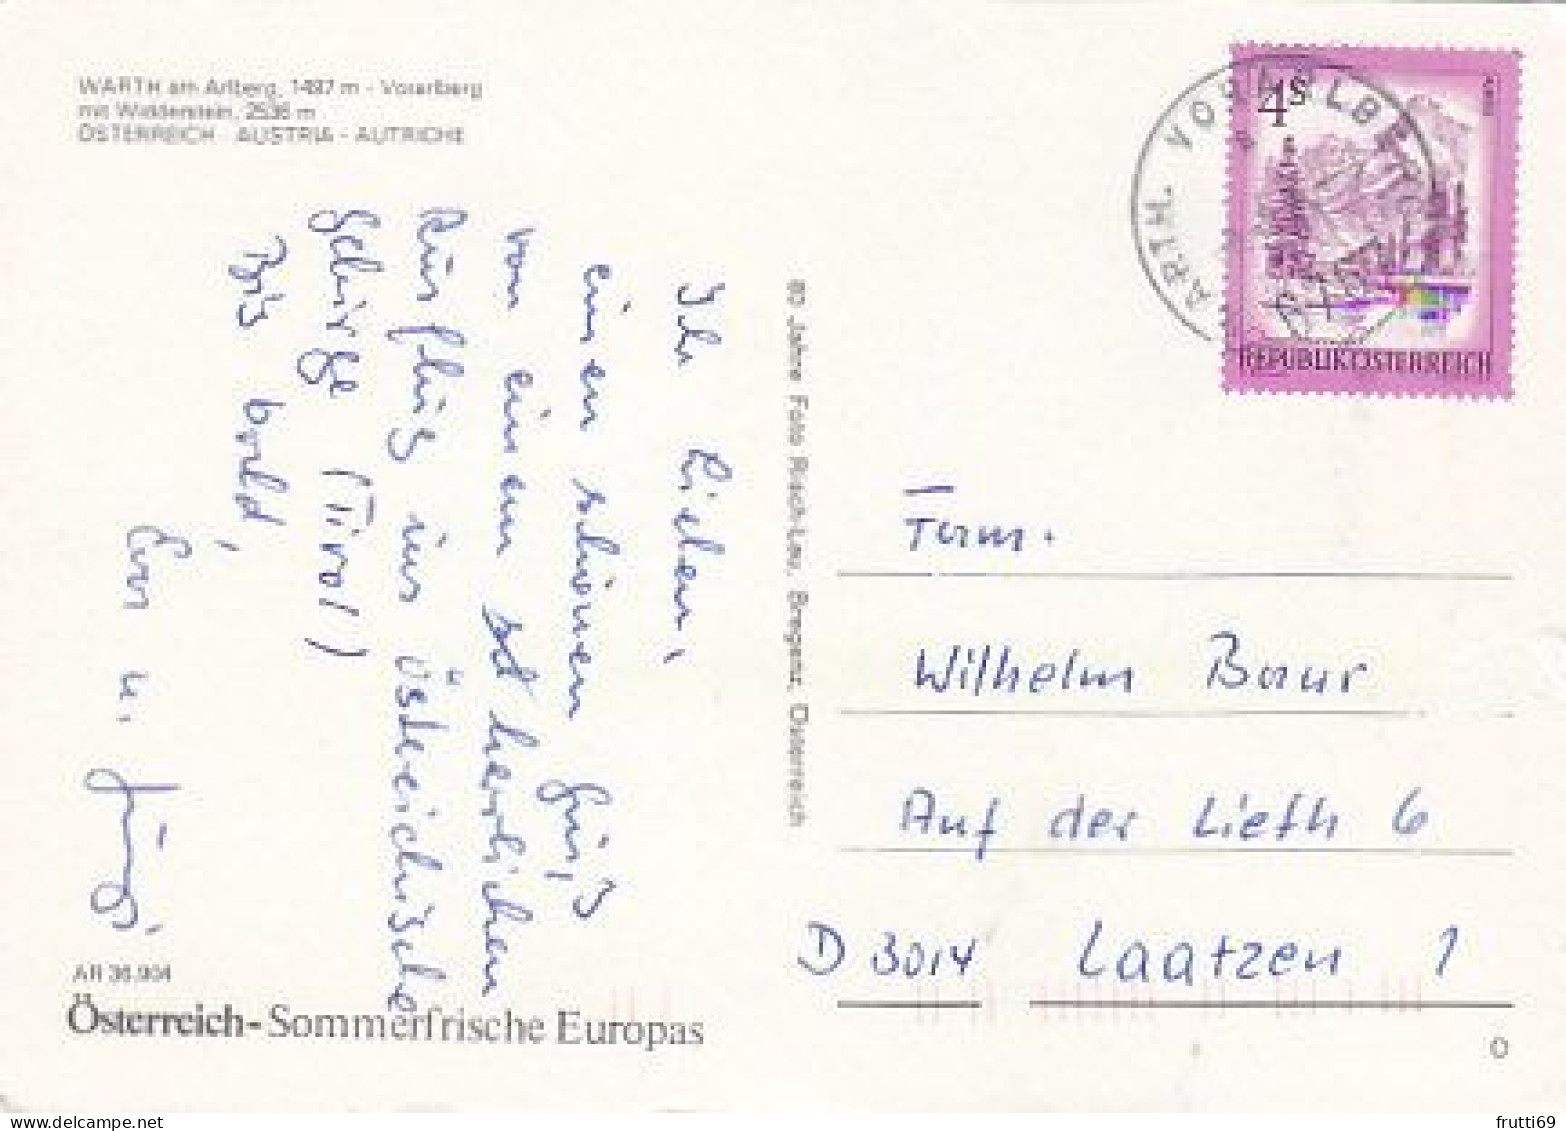 WARTH am Arlberg, 1487 m - Vorarlberg
mit Widderstein, 2536 m
ÖSTERREICH - AUSTRIA - AUTRICHE
Ihr Lieben,
einen schönen Gruß
von einem herrlichen
Ausflug ins östreichische
Gebirge (Tirol)
Bis bald,
u.
80 Jahre Foto Risch-Lau, Bregenz, Österreich
AR 36.904
Österreich-Sommerfrische Europas
ARTH. VORARLBE
4S
REPUBLIK ÖSTERREICH
Fam.
Wilhelm Baur
Auf der Lieth 6
D 3014 Laatzen 1
O
frutti69